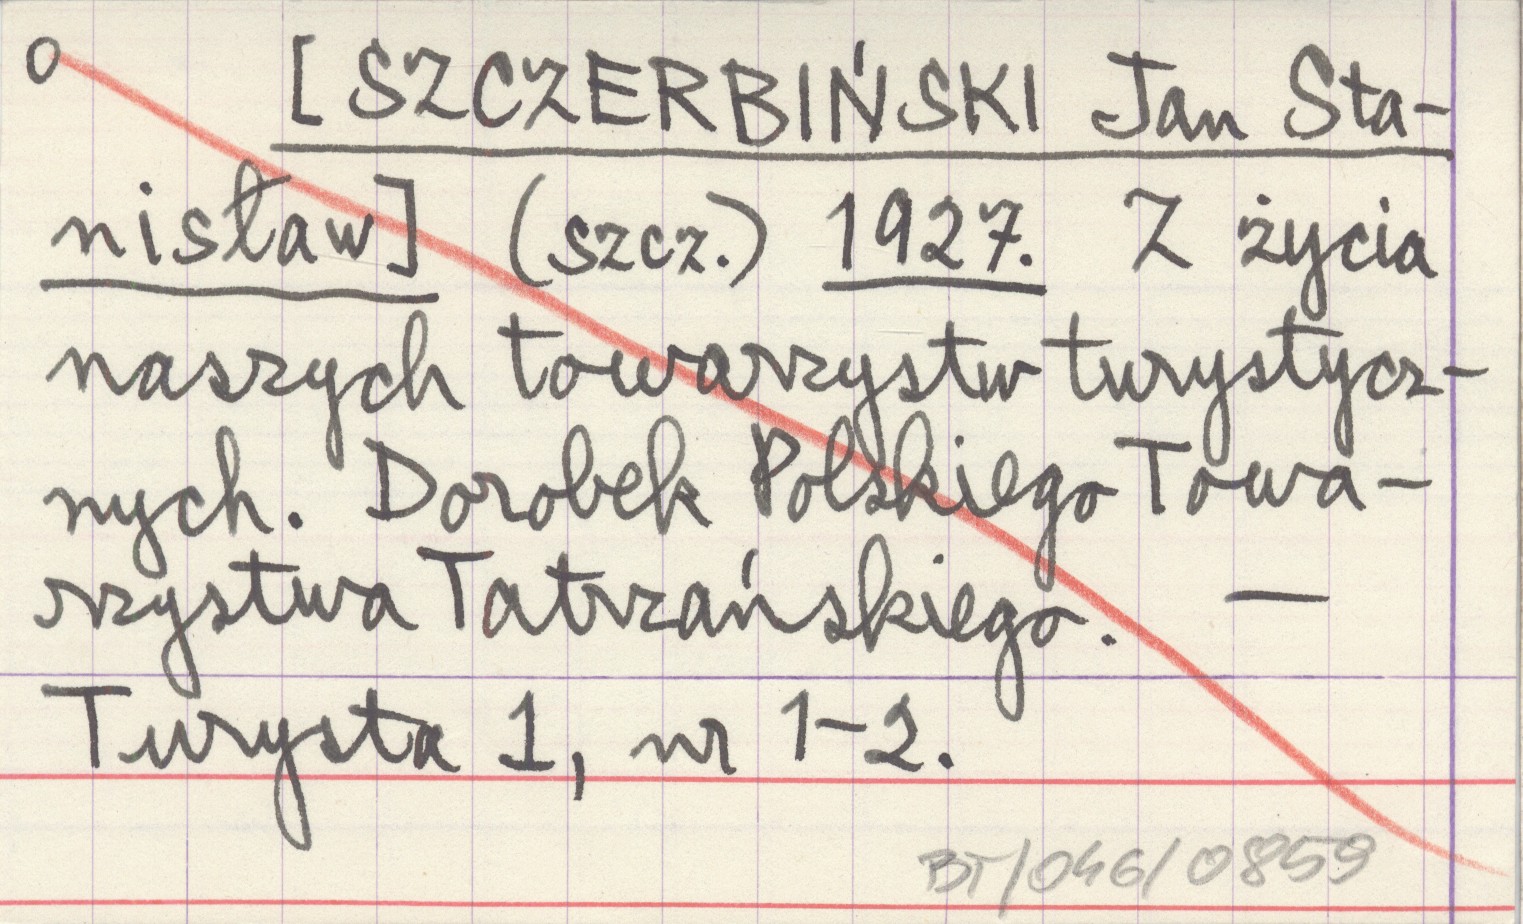 o [SZCZERBIŃSKI Jan Sta-
nisław] (szcz.) 1927. Z życia
naszych towarzystw turystycz-
nych. Dorobek Polskiego Towa-
rzystwa Tatrzańskiego. —
Turysta 1, nr 1-2.
BT/046/0859